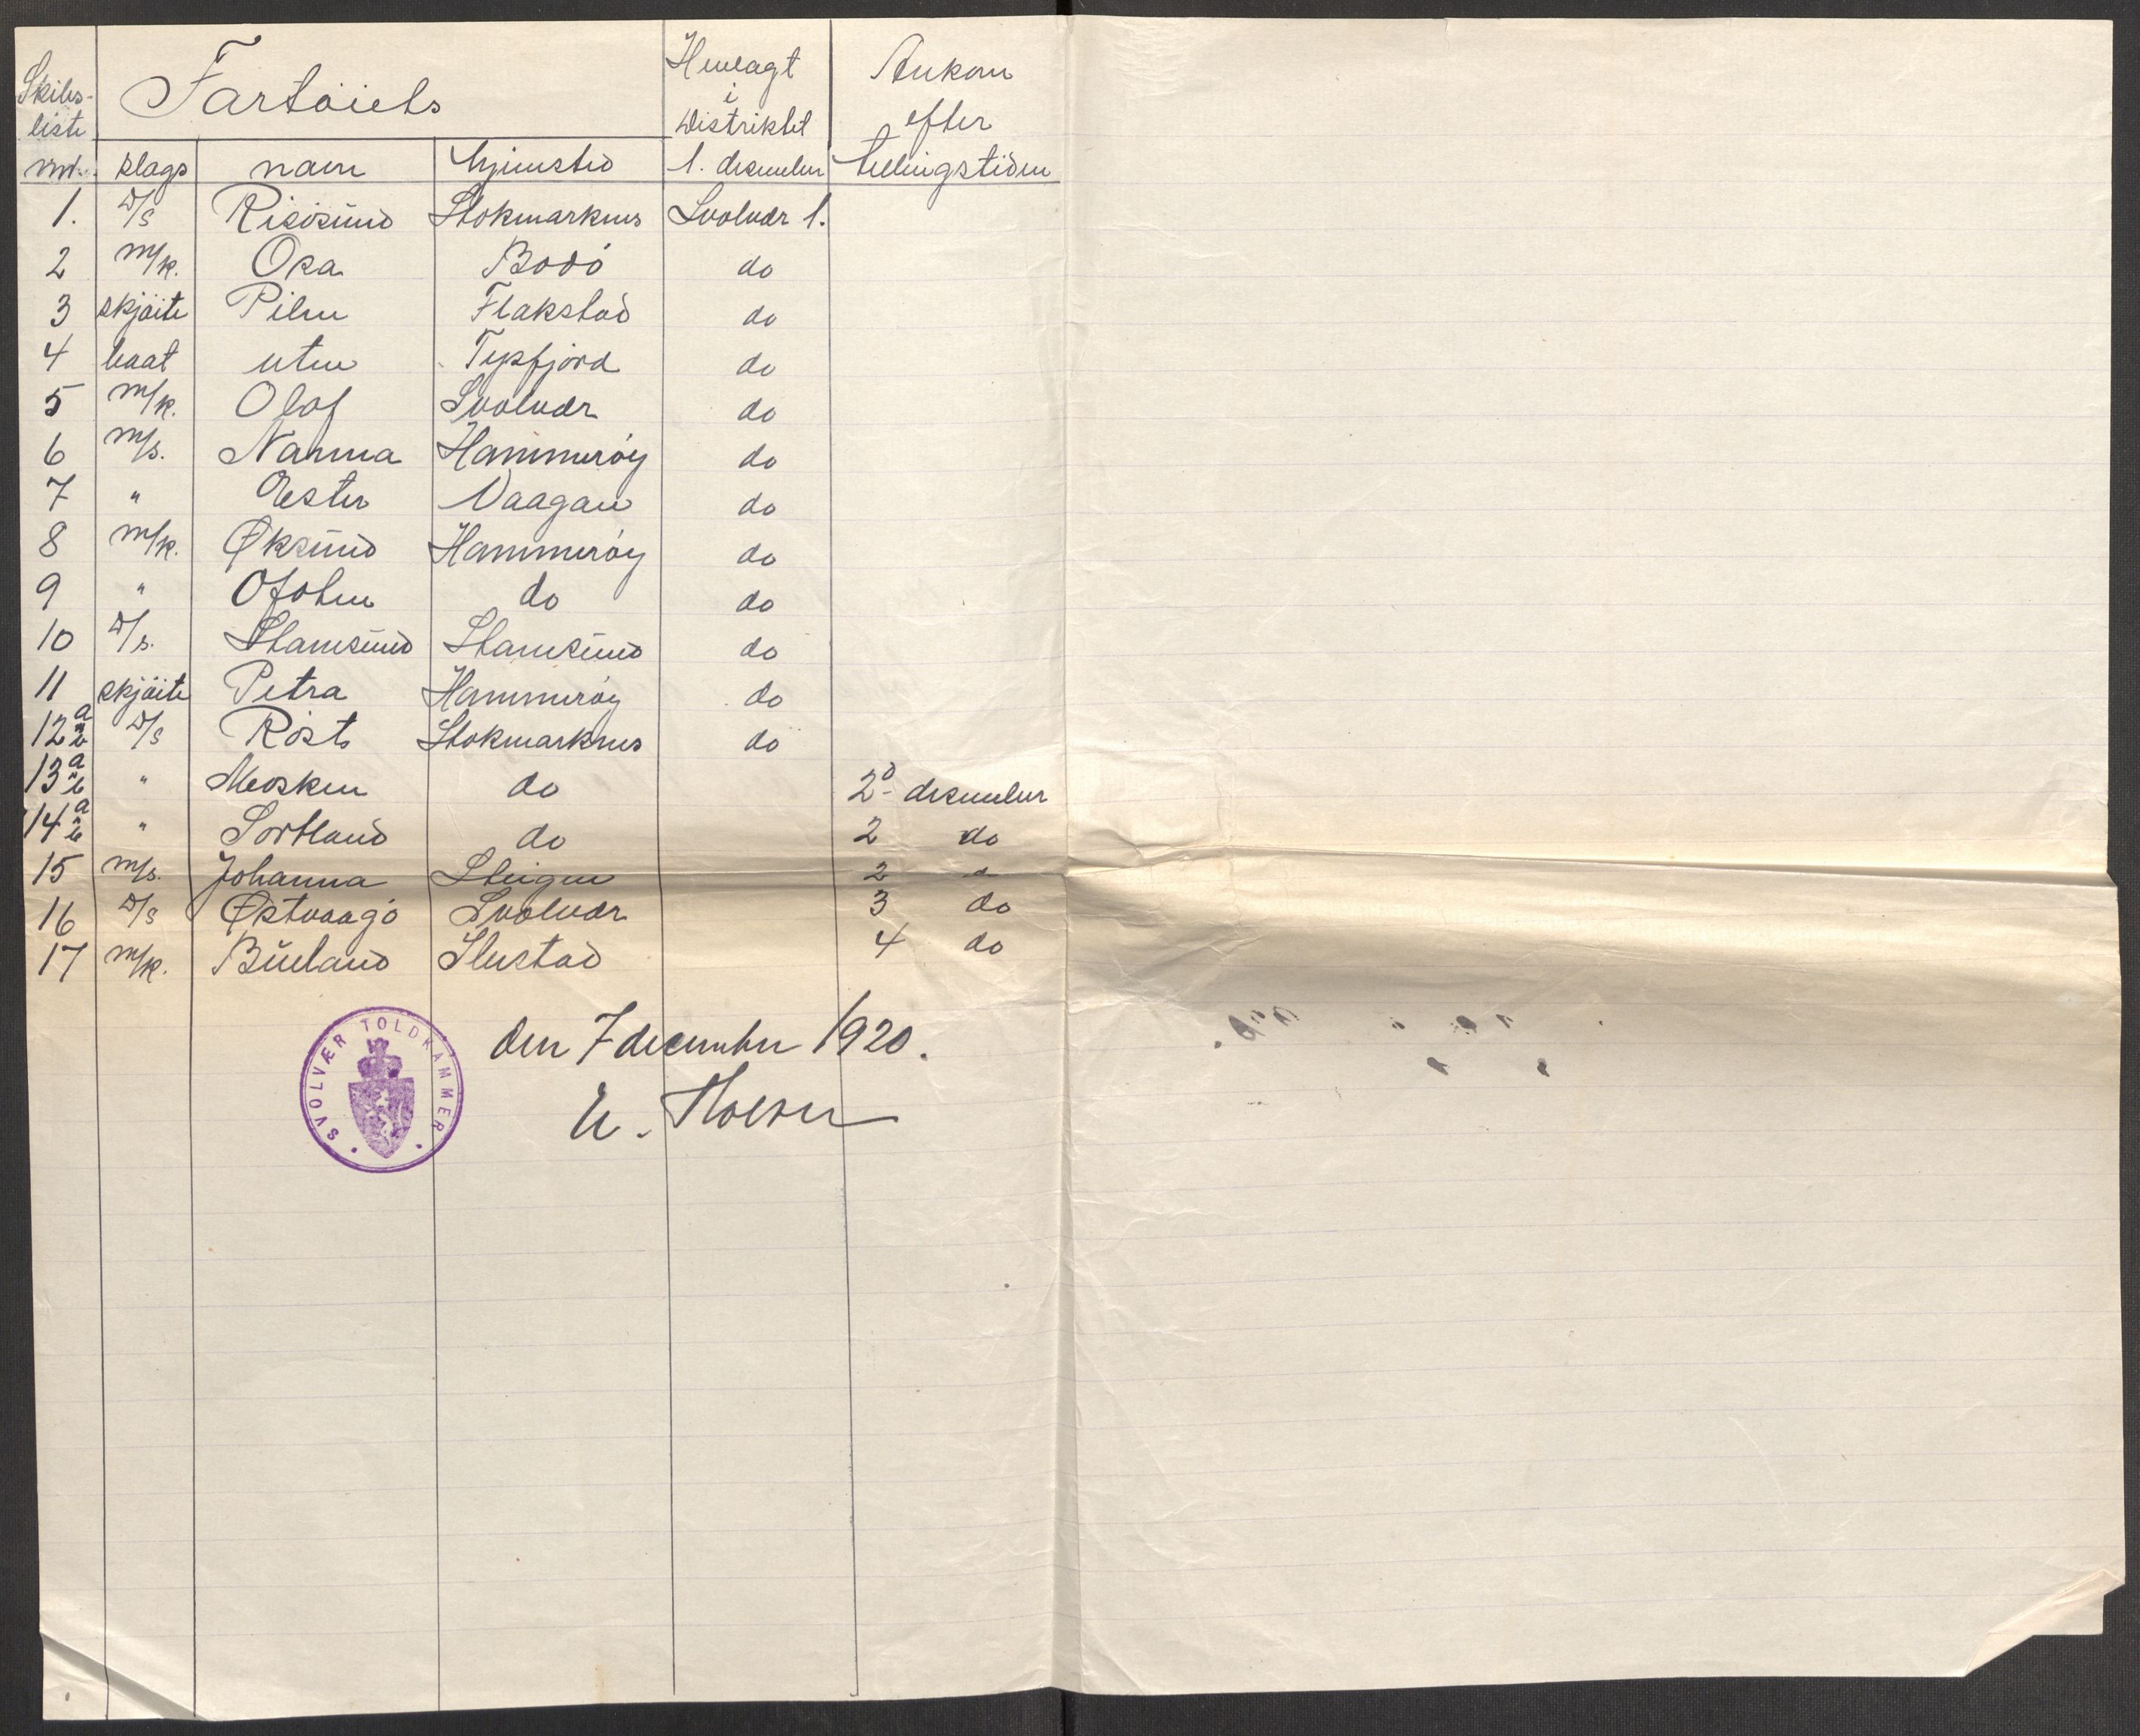 Skibs-
liste
Fartöiets
Henlagt
i
Distriktet
Ankom
efter
nr. klags navn hjemsted 1. desember tellingstiden
1. D/S Risösund Stokmarknes Svolvær 1.
2 m/k. Osa Bodö do
3 skjöite Pilen Flakstad do
4 baat uten Tysfjord do
5 m/k. Olaf Svolvær do
6 m/s. Nanna Hammeröy do
7 " Ester Vaagan do
8 m/k. Øksund Hammeröy do
9 " Ofoten do do
10 D/s. Stamsund Stamsund do
11 skjöite Petra Hammeröy do
12 a & b D/S Röst Stokmarknes do
13 a " b " Mosken do 2 desember
14 a " b " Sortland do 2 do
15 m/s. Johanna Steigen 2 "
16 D/S Østvaagö Svolvær 3 do
17 m/k. Bueland 4 do
den 7 december 1920.
SVOLVÆR TOLDKAMMER